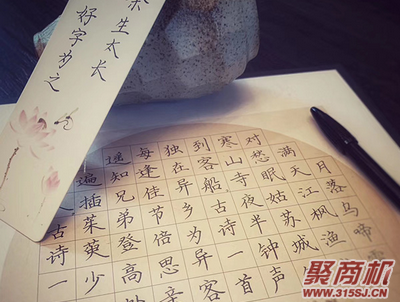 生太长
好字为之
月落乌啼
满天江枫渔
对愁眠姑苏城
寒山寺夜半钟声
到客船古诗一首
独在异乡为异客
每逢佳节倍思亲
遥知兄弟登高处
遍插茱萸少
人古诗一
聚商机
WWW.315SJ.COM